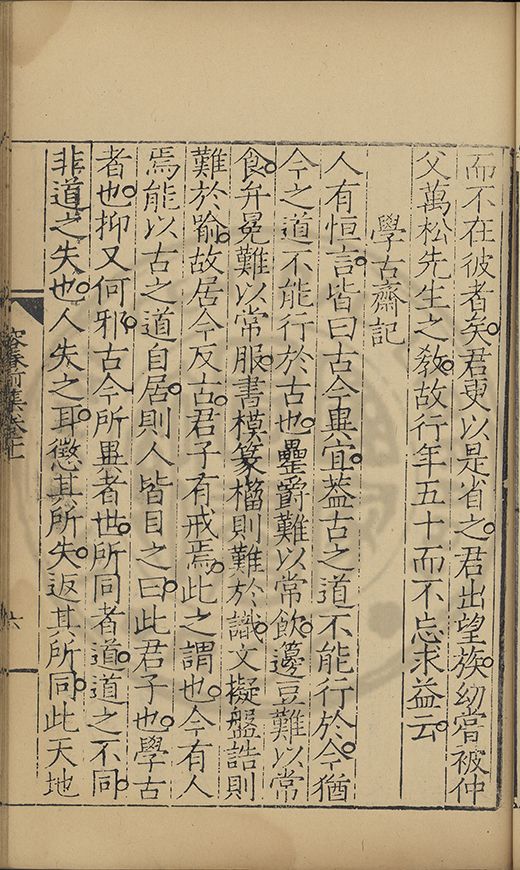 而不在彼者矣君更以是省之君出望族幼嘗被仲
父萬松先生之教故行年五十而不忘求益云
學古齋記
人有恒言皆曰古今異宜葢古之道不能行於今猶
今之道不能行於古也罍爵難以常飲籩豆難以常
食弁冕難以常服書模篆榴則難於識文擬盤誥則
難於喻故居今反古君子有戒焉此之謂也今有人
焉能以古之道自居則人皆目之曰此君子也學古
者也抑又何邪古今所異者世所同者道道之不同
非道之失也人失之耳懲其所失返其所同此天地
容春前集卷十
六